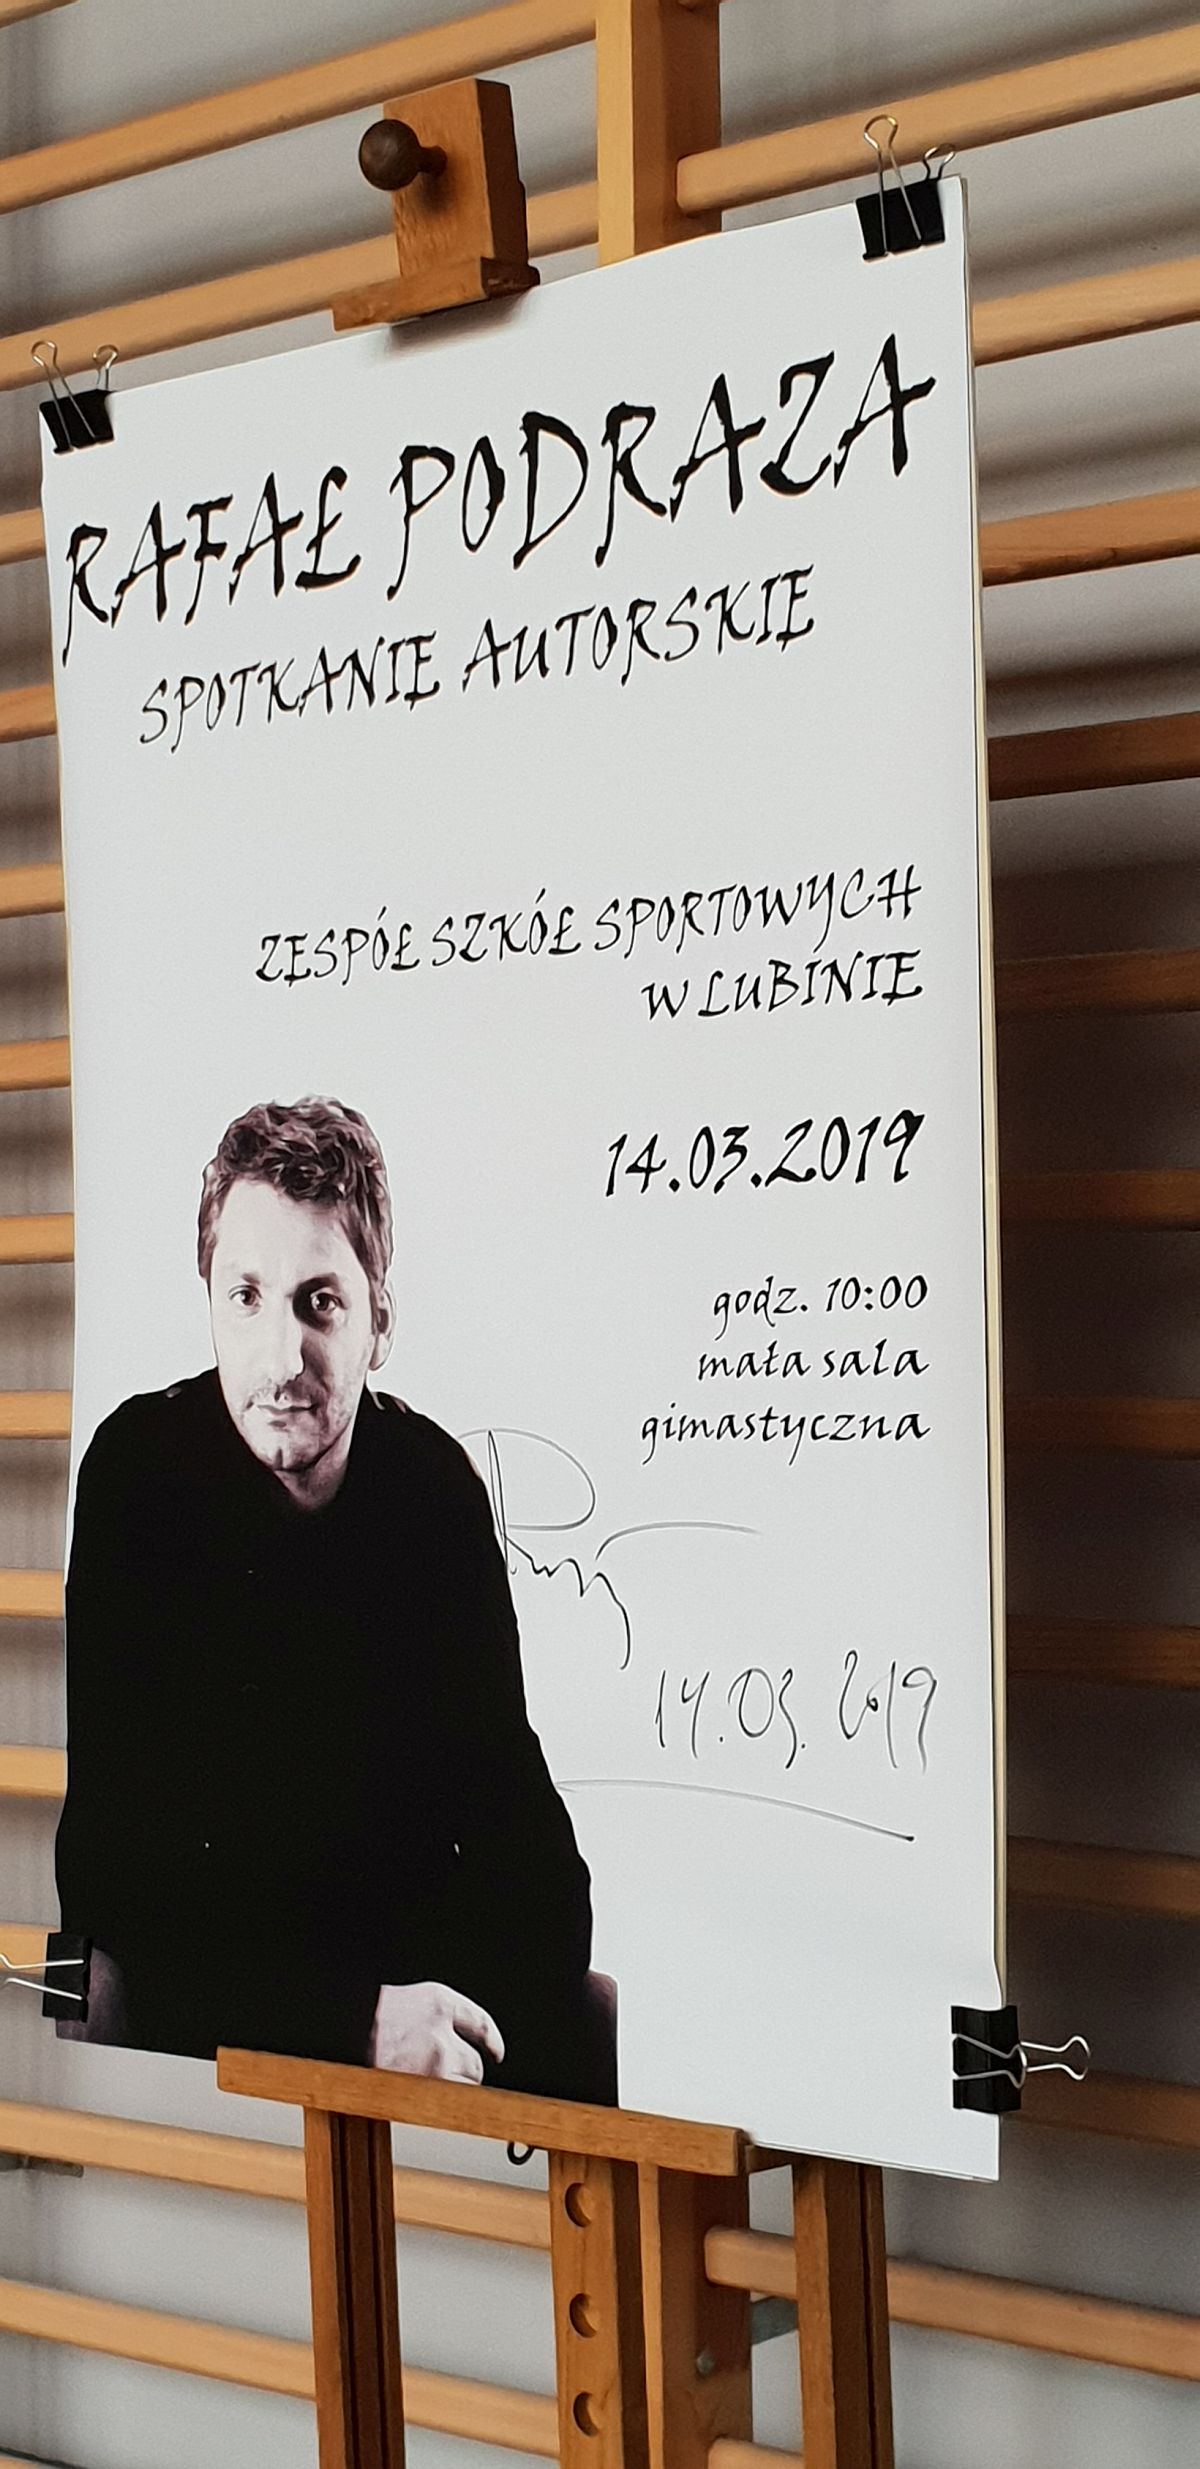 RAFAŁ PODRAZA
SPOTKANIE AUTORSKIE
ZESPÓŁ SZKÓŁ SPORTOWYCH
W LUBINIE
14.03.2019
godz. 10:00
mała sala
gimastyczna
14.03.2019